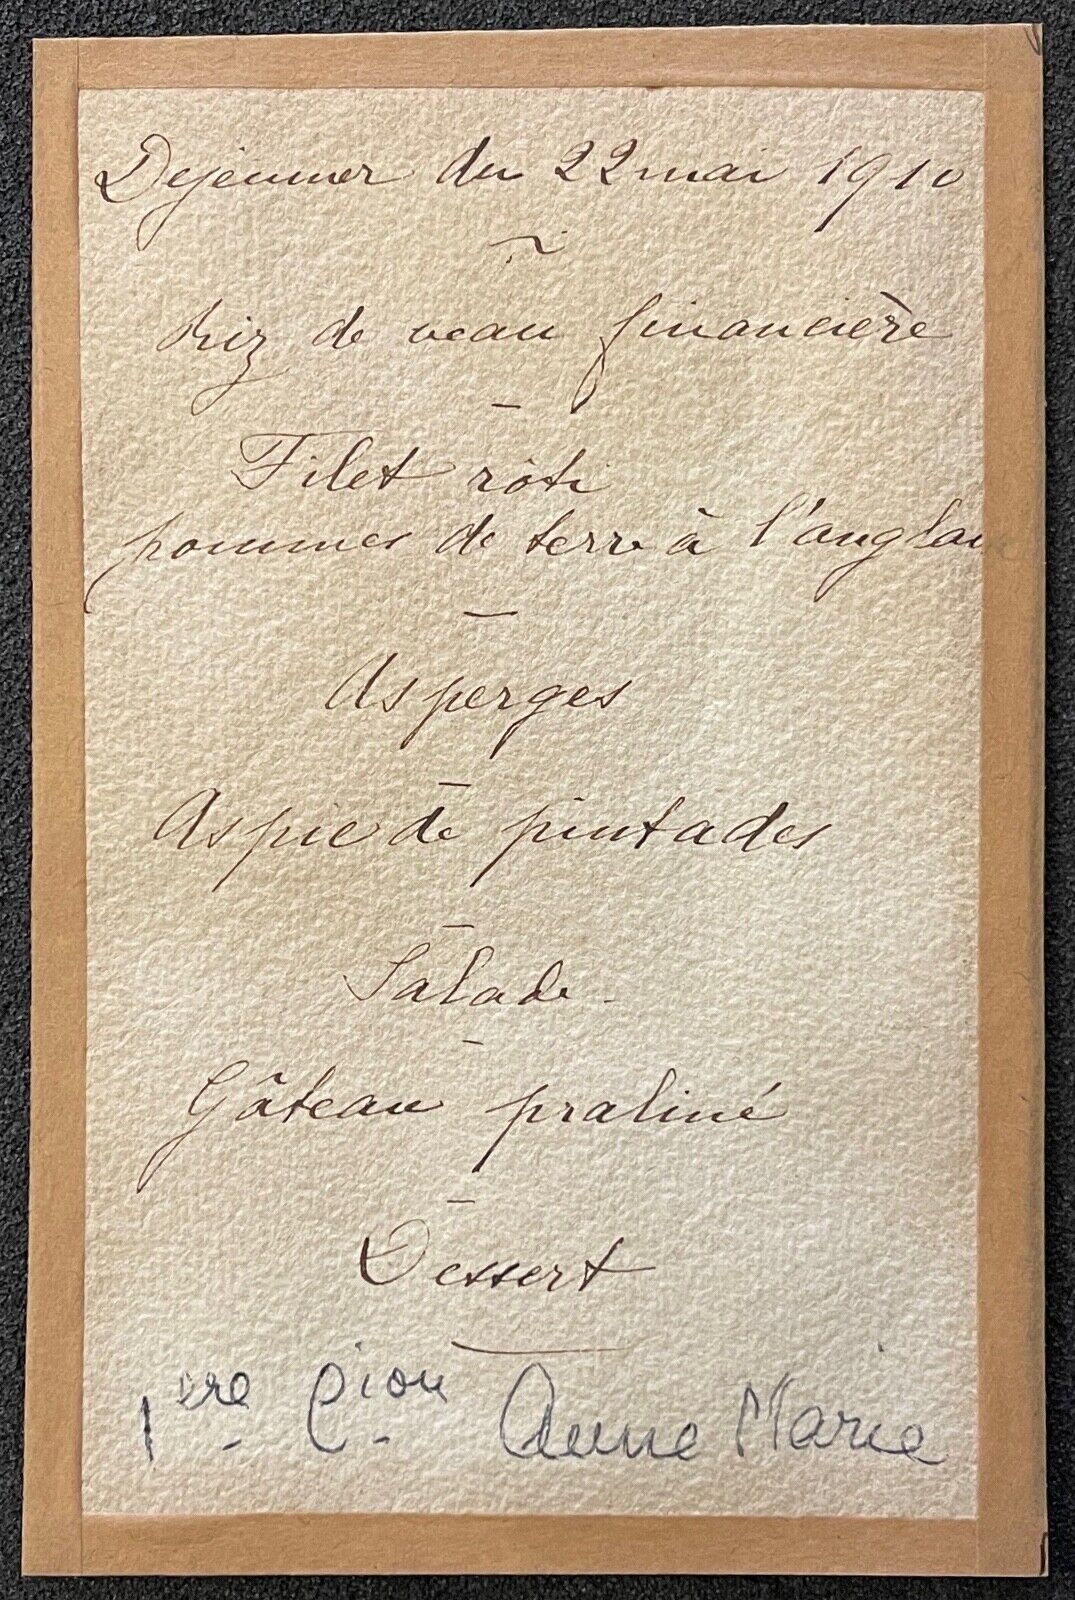 Dejeuner du 22 mai 1910
Riz de veau financière
Filet rôti
pommes de terre à l'anglaise
Asperges
Aspic de pintades
Salade
Gâteau praliné
Dessert
1ere Cion Anne Marie